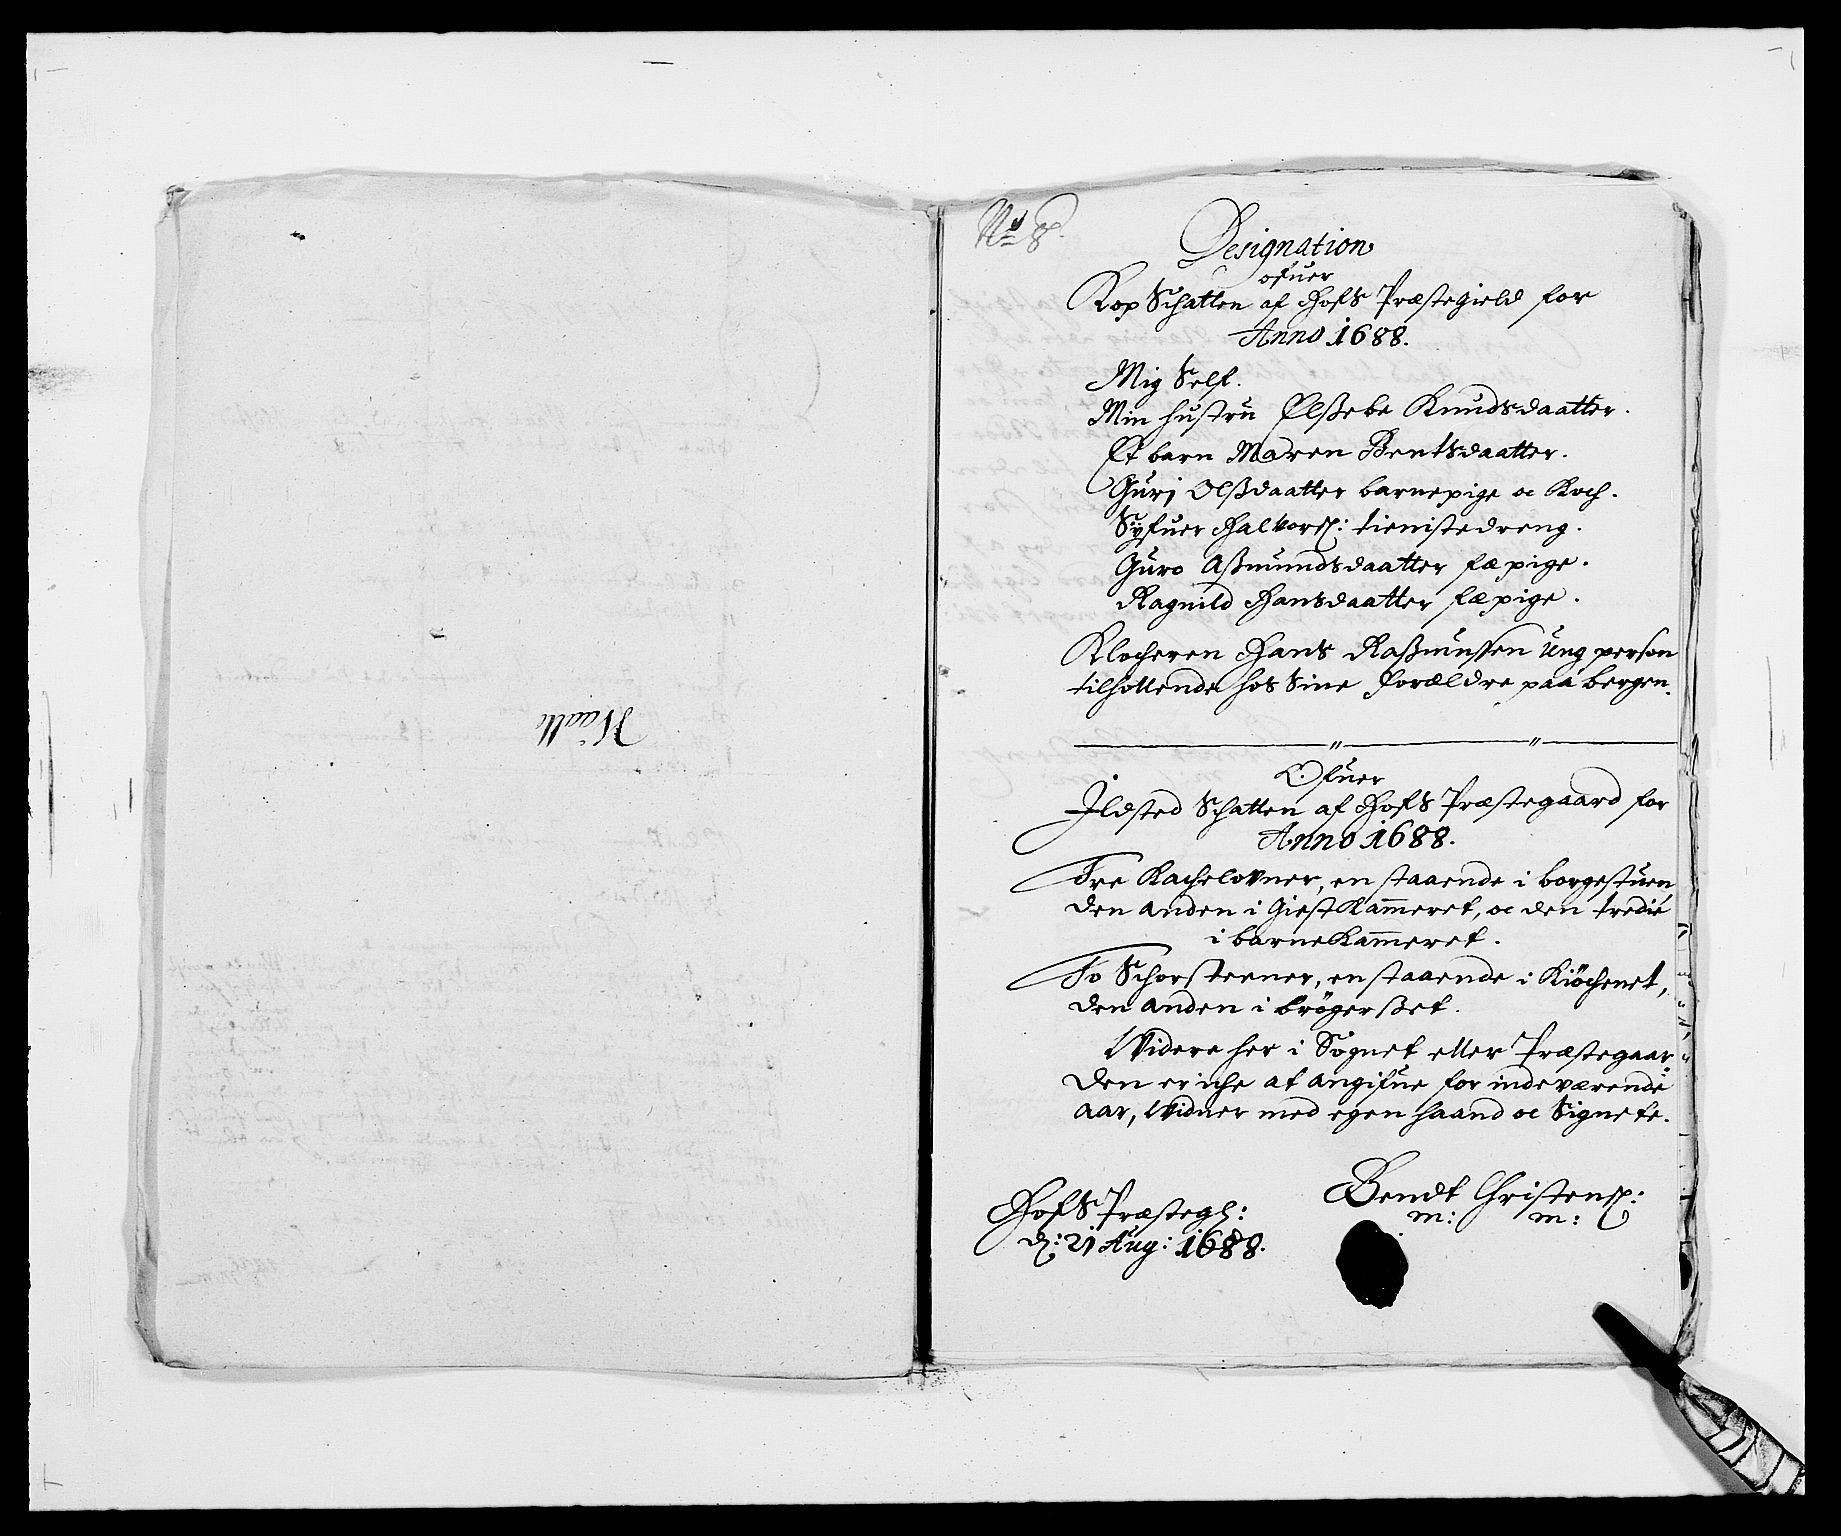 No 8.
Designation
ofuer
Kop Schatten af Hofs Præstegield for
Anno 1688.
Mig Self.
Min hustru Elßebe Knudsdaatter.
Et barn Maren Bentsdaatter.
Guri Olßdaatter barnepige oc Koch.
Syfuer Halvorß: tienistedreng.
Guro Aßmundsdaatter fæpige.
Ragnild Hansdaatter fæpige.
Klocheren Hans Raßmussen Ung person
tilhollende hos Sine Forældre paa bergen.
Ofuer
Ildsted Schatten af Hofs Præstegaard for
Anno 1688.
Tre Kachelovner, en staaende i borgestuen,
den anden i Giestkam̅eret, oc den tredie
i barnekam̅eret.
To Schorsteener, en staaende i Kiöchenet,
den anden i brögerßet.
Widere her i Sognet eller Præstegaar-
den er iche at angifue for indeværende
aar, Widner med egen haand oc Signete.
Hofs Præsteg:
d: 21 Aug: 1688.
Bendt Christenß:
m: m: